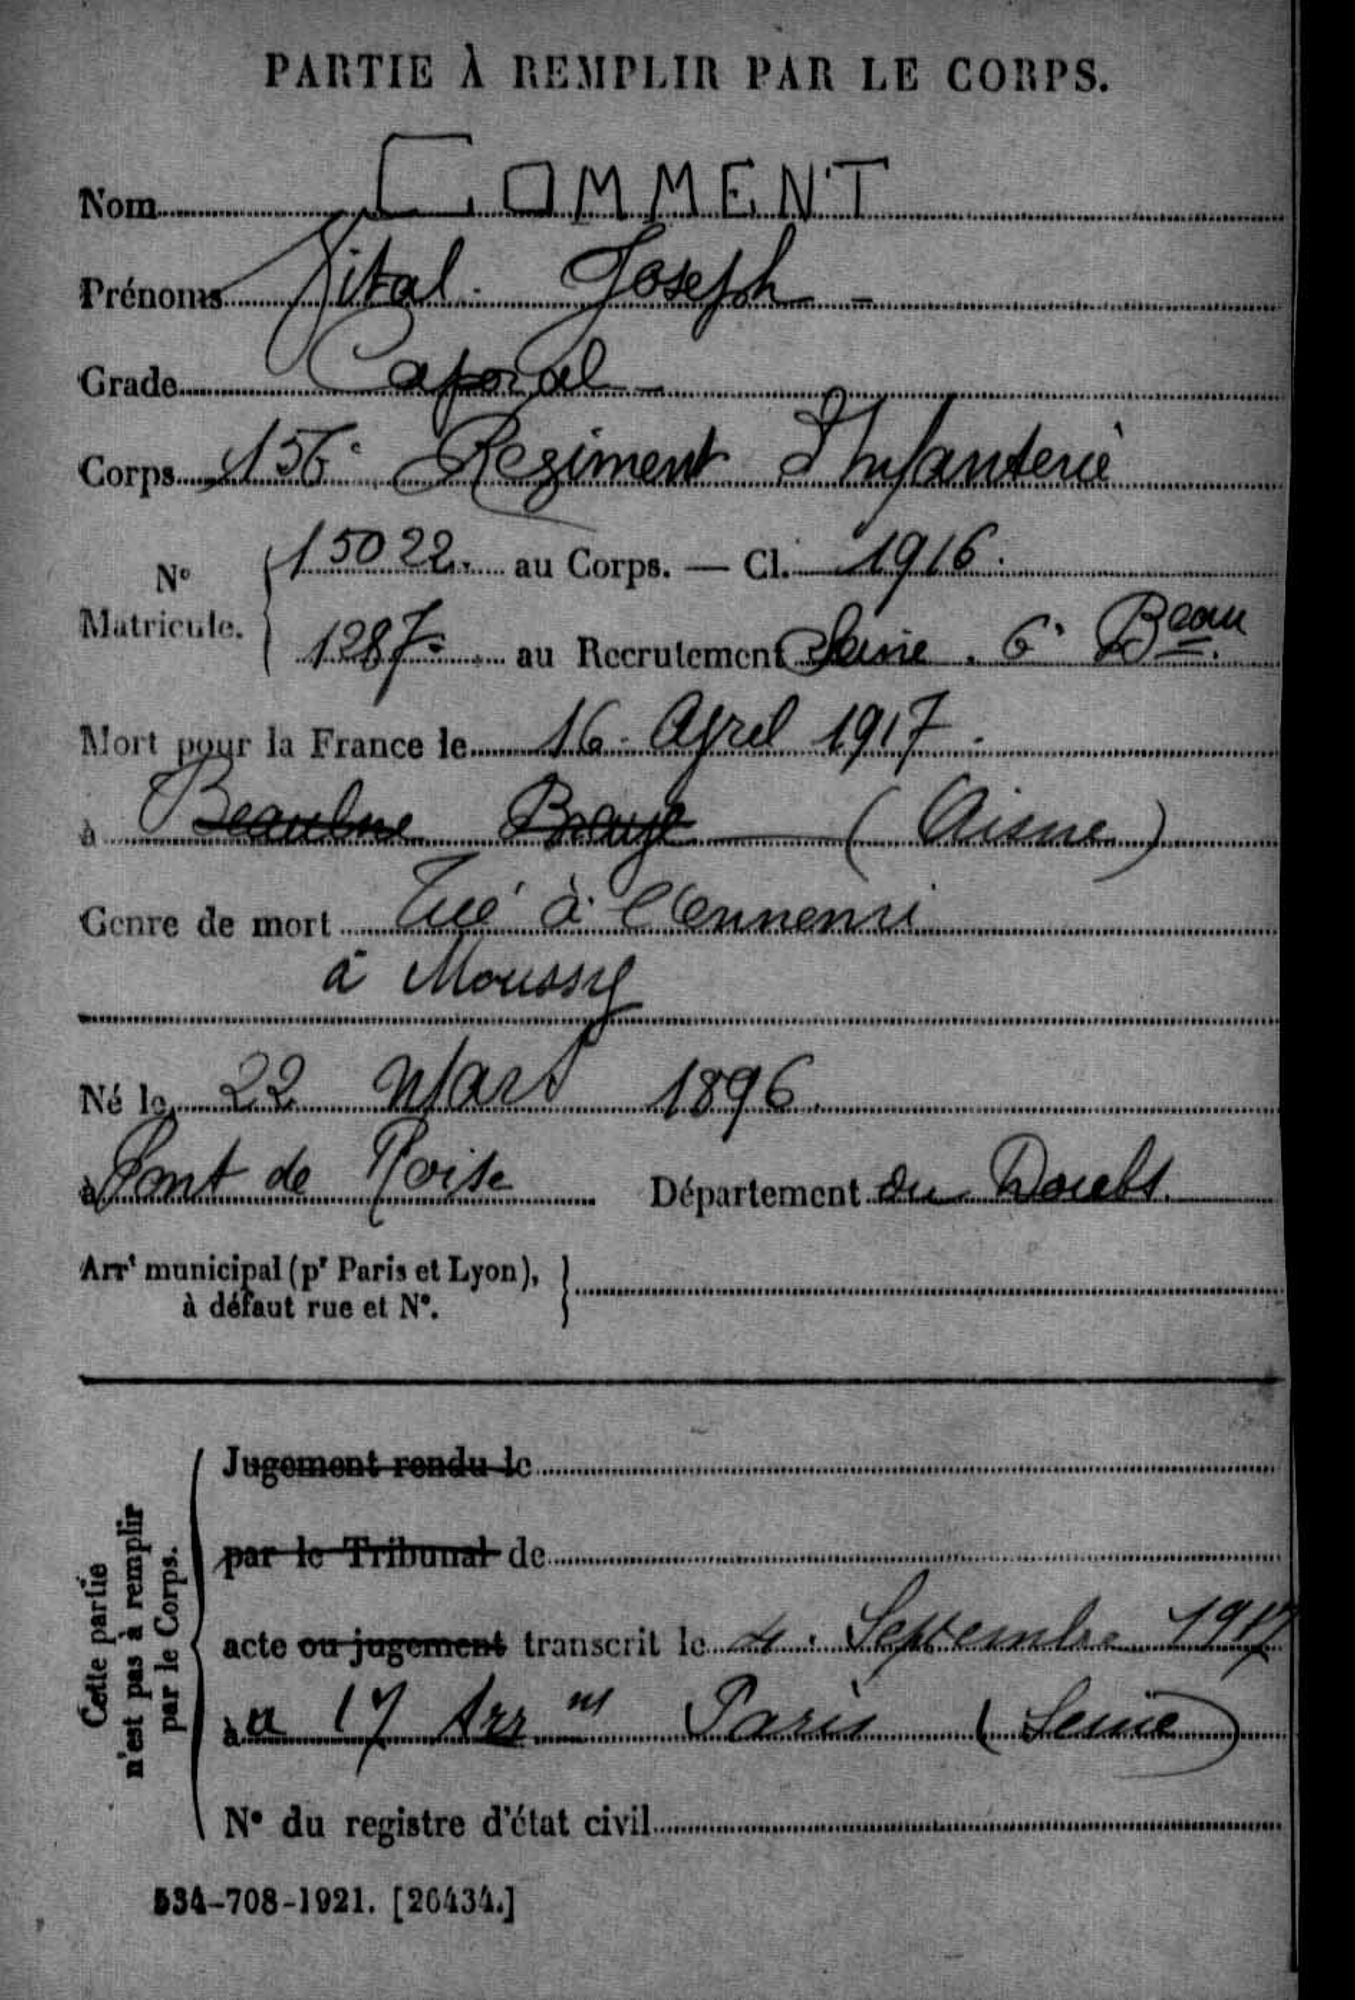 PARTIE À REMPLIR PAR LE CORPS.
Nom COMMENT
Prénoms Vital Joseph
Grade Caporal
Corps 156e Régiment d'Infanterie
N° Matricule. 15022. au Corps. — Cl. 1916.
1287 au Recrutement Seine. 6e Beau
Mort pour la France le 16 Avril 1917.
à Beaulne Braye (Aisne)
Genre de mort Tué à l'Ennemi
à Moussy
Né le 22 Mars 1896.
à Pont de Roise Département du Doubs.
Arrt municipal (pr Paris et Lyon),
à défaut rue et N°.
Cette partie n'est pas à remplir par le Corps.
Jugement rendu le
par le Tribunal de
acte ou jugement transcrit le 4 Septembre 1917
à a 17 Arr nt Paris (Seine)
N° du registre d'état civil
534-708-1921. [26434.]